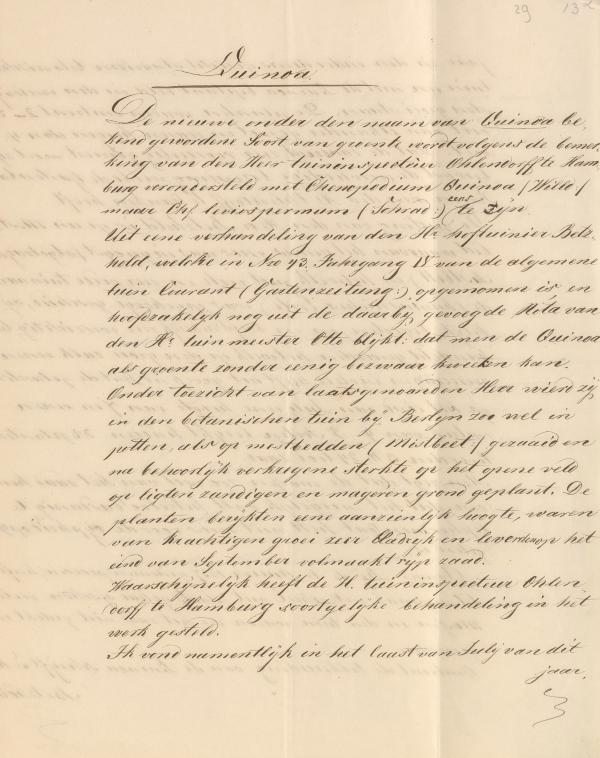 29 13
Quinoa.
De nieuwe onder den naam van Quinoa be,
kend gewordene Soort van groente wordt volgens de bemer,
king van den Heer tuininspecteur Ohlendorff te Ham,
burg verondersteld met Chenopodium Quinoa (Willd)
maar Ch: leviospermum (Schrad:) eens te zyn.
Uit eene verhandeling van den Hr hoftuinier Betz,
hold, welke in Nro 43. Jahrgang IV van de algemene
tuin Courant (Gartenzeitung:) opgenomen is, en
hoofdzakelijk nog uit de daarby gevoegde Nota van
den Hr tuinmeester Otto blijkt: dat men de Quinoa
als groente zonder eenig bezwaar kweeken kan.
Onder toezicht van laatsgenoemden Heer wierd zy
in den botanischen tuin by Berlyn zoo wel in
potten, als op mestbedden (Mistbeet) gezaaid en
na behoorlijk verkregene sterkte op het opene veld
op ligten zandigen en mageren grond geplant. De
planten berykten eene aanzienlijk hoogte, waren
van krachtigen groei zeer bladryk en leverden op het
eind van September volmaakt ryp zaad.
Waarschynelijk heeft de H. tuininspecteur Ohlen,
dorff te Hamburg soortgelyke behandeling in het
werk gesteld.
Ik vond namentlijk in het laast van Julij van dit
jaar,